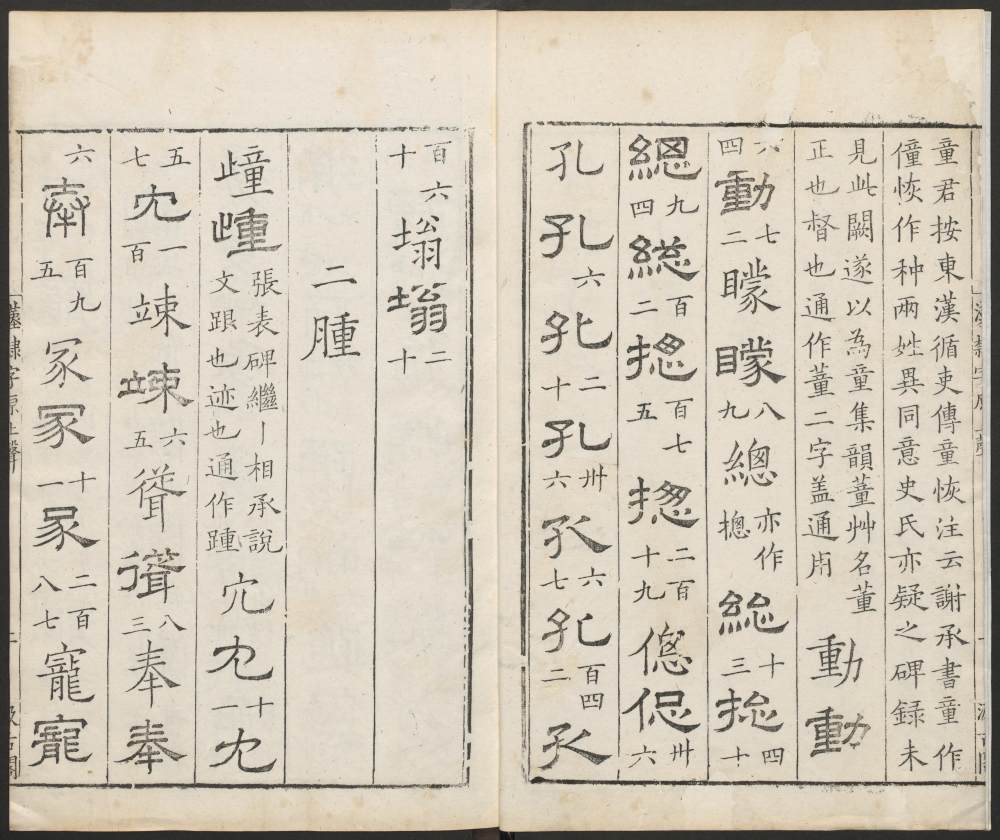 童君按東漢循吏傳童恢注云謝承書童作
僮恢作种兩姓異同意史氏亦疑之碑録未
見此闕遂以為童集韻蕫艸名董
正也督也通作董二字盖通用 動動
六四 動 七二 矇矇 八九 總 亦作摠 総 十三 捴 四十
緫 九四 総 百二 揔 百七五 揔 二百十九 傯偬 卅六
孔孔 六 孔 二十 孔 卅六 孔 六七 孔 百四二 孔
漢隸字原上聲 汲古閣
百六十 塕塕 二十
二腫
歱歱 張表碑繼丨相承說
文跟也迹也通作踵 宂宂 十一 宂
五七 宂 一百 竦竦 六五 奉奉 八三
六 奉 百九五 冢冢 十一 冢 二百八七 寵寵
漢隸字原上聲 汲古閣